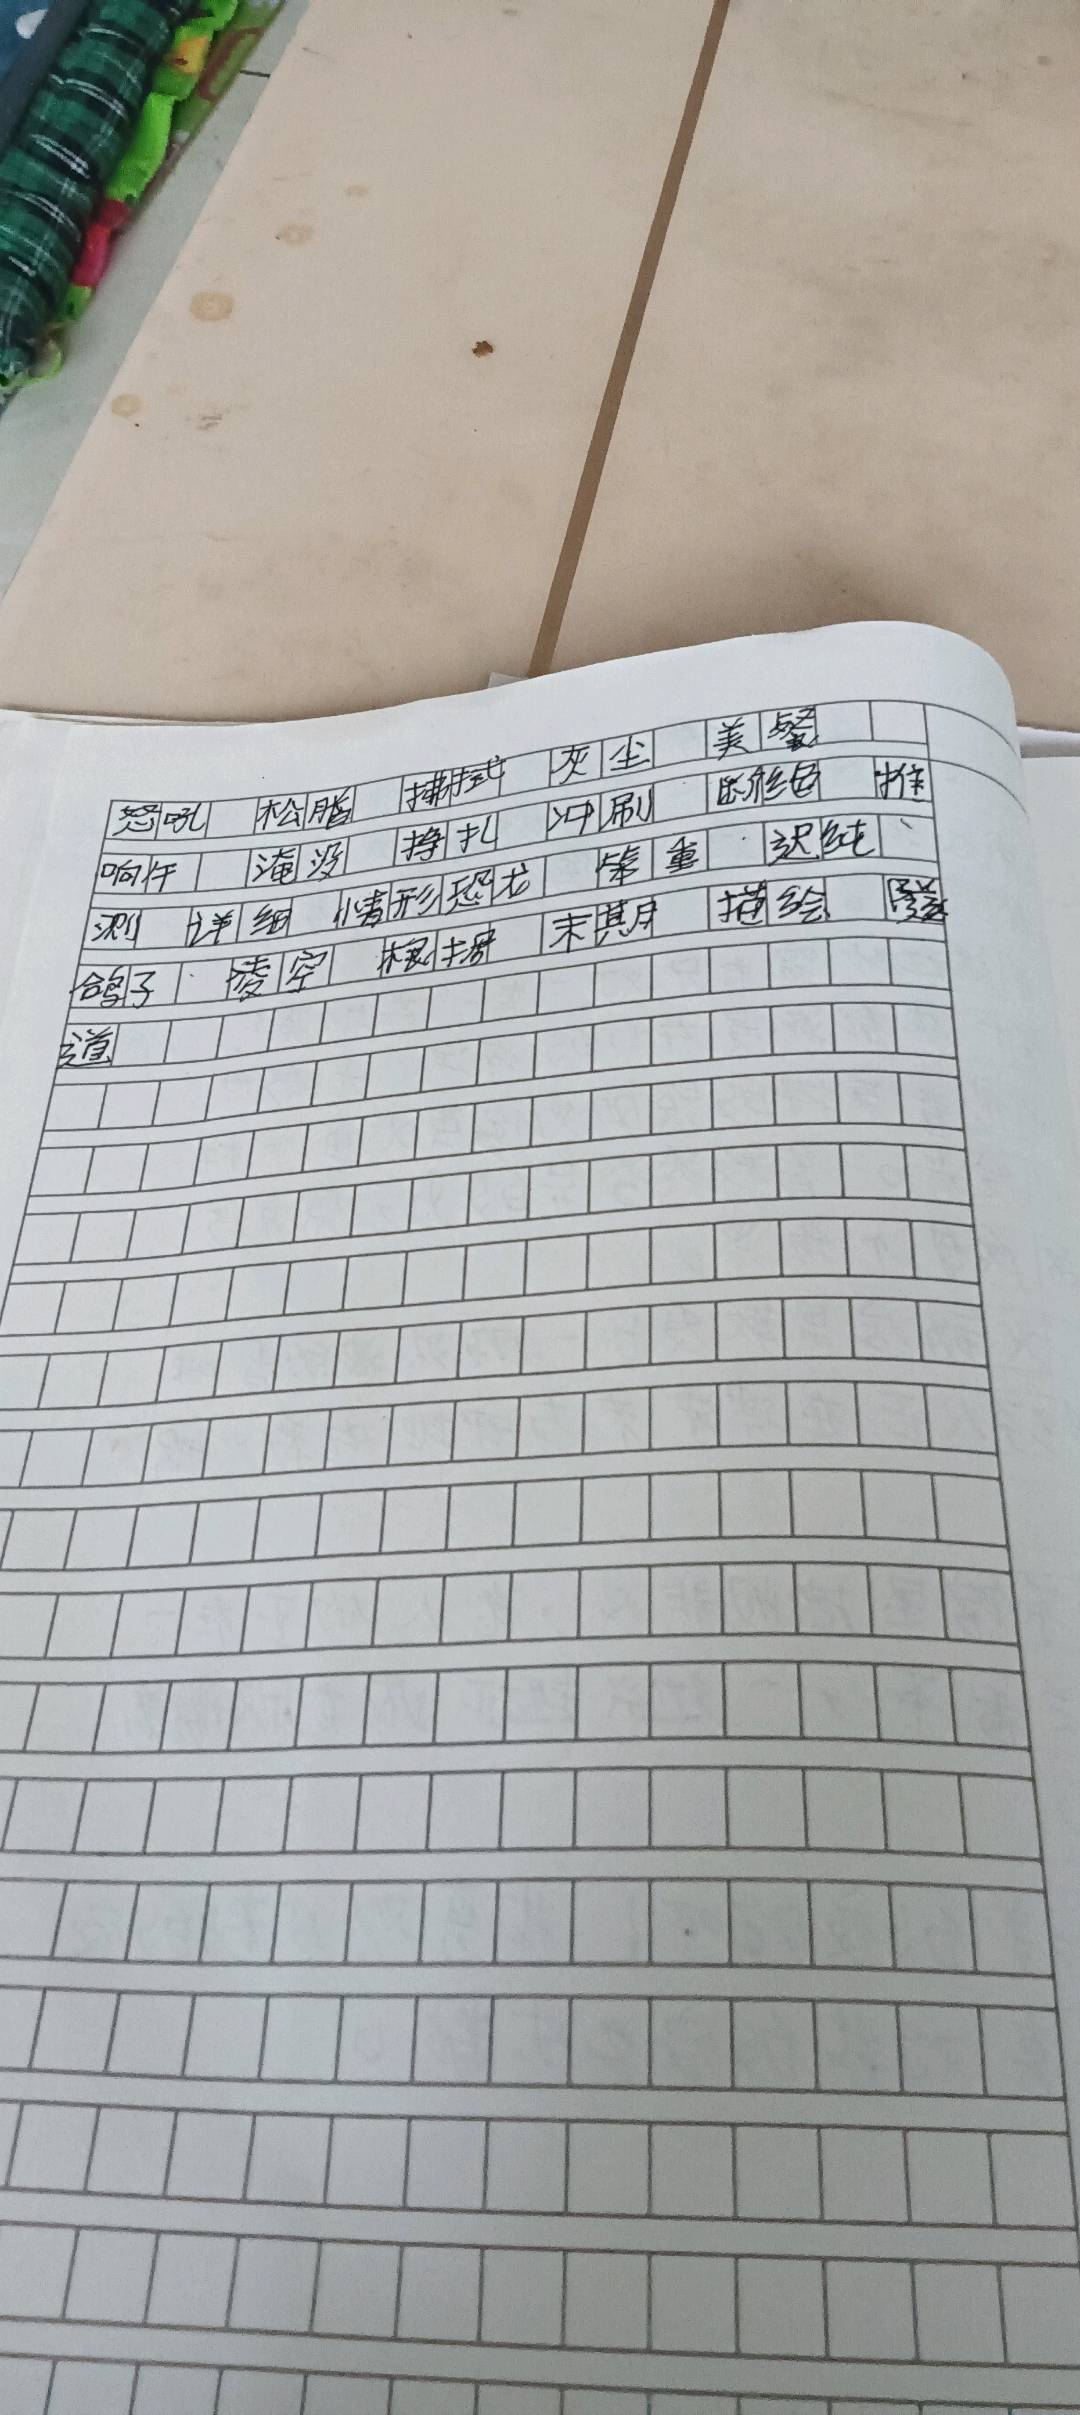 怒吼 松脂 拂拭 灰尘 美餐
晌午 淹没 挣扎 冲刷 推
测 详细 情形 恐龙 笨重 迟钝
鸽子 凌空 末期 描绘 隧
道